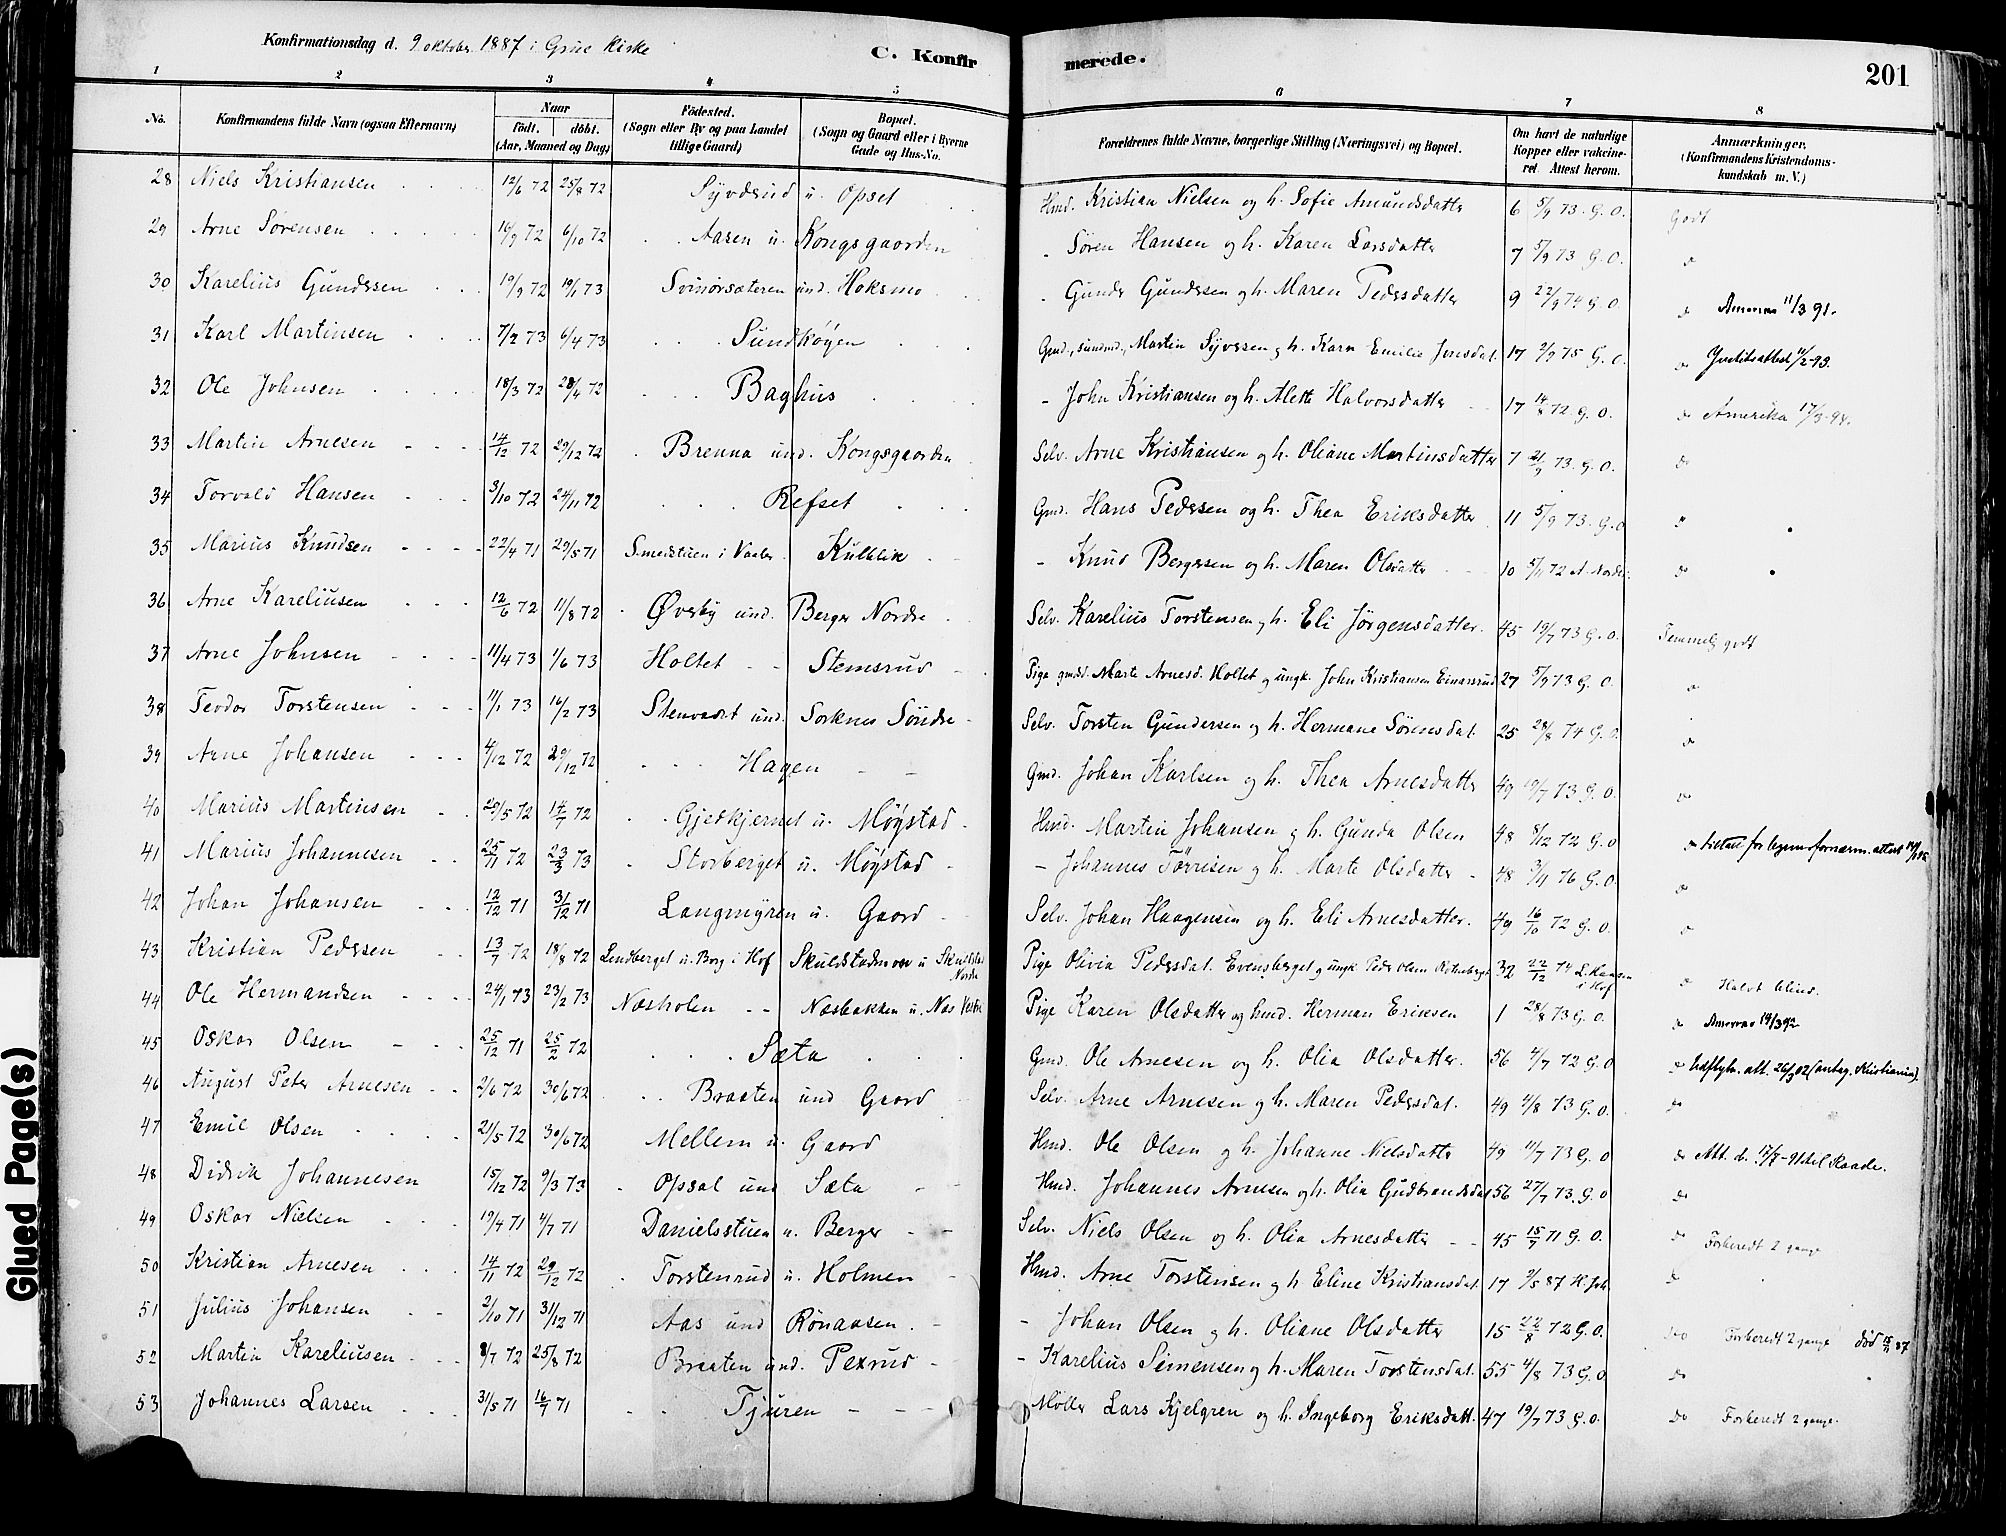 Konfirmationsdag d. 9 oktober 1887 i Grue Kirke
C. Konfirmerede.
201
1 2 3 4 5 6 7 8
No. Konfirmandens fulde Navn (ogsaa Efternavn) Naar født. døbt. (Aar, Maaned og Dag) Fødested. (Sogn eller By og paa Landet tillige Gaard) Bopæl. (Sogn og Gaard eller i Byerne Gade og Hus-No. Forældrenes fulde Navne, borgerlige Stilling (Næringsvei) og Bopæl. Om havt de naturlige Kopper eller vakcineret. Attest herom. Anmærkninger. (Konfirmandens Kristendomskundskab m. V.)
28 Niels Kristiansen 12/6 72 25/8 72 Syvdsrud u. Opset Hmd. Kristian Nielsen og h. Sofie Amundsdatter 6 5/9 73. G. O. Godt
29 Arne Sørensen 16/9 72 6/10 72 Aasen u. Kongsgaarden - Søren Hansen og h. Karen Larsdatter 7 5/9 73 G. O. do
30 Karelius Gundersen 19/9 72 19/1 73 Svinørsæteren und. Hoksmo - Gunder Gundersen og h. Maren Pedersdatter 9 22/9 74 G. O. do Amerika 11/3 91.
31 Karl Martinsen 7/2 73 6/4 73 Sundhøgen Gmd., sundmd., Martin Syversen og h. Karn Emilie Jensdat. 17 2/9 75 G. O. do
32 Ole Johnsen 18/3 72 28/4 72 Baghus - John Kristiansen og h. Alette Halvorsdatter 17 14/8 72 G. O. do Amerika
33 Martin Arnesen 14/12 72 29/12 72 Brenna und. Kongsgaarden Selv. Arne Kristiansen og h. Oliane Martinsdatter 7 21/9 73. G. O. do
34 Torvald Hansen 3/10 72 24/11 72 Refset Gmd. Hans Pedersen og h. Thea Eriksdatter 11 5/9 73. G. O do
35 Marius Knudsen 22/4 71 29/5 71 Smedstuen i Vaaler Kulblik - Knud Bergersen og h. Maren Olsdatter 10 5/11 72 do
36 Arne Kareliusen 12/6 72 11/8 72 Øvreby und. Berger Nordre Selv. Karelius Torstensen og h. Eli Jørgensdatter. 45 19/7 73 G. O. Temmelg godt
37 Arne Johnsen 11/4 73 1/6 73 Holtet Stemsrud Pige gmdd. Marte Arnesd. Holtet og ungk. John Kristiansen Einarsrud 27 5/9 73 G. O. do
38 Teodor Torstensen 11/1 73 16/2 73 Stenvadet und. Sorknes Søndre Selv. Torsten Gundersen og h. Hermane Sørensdat. 25 28/8 74 G. O. do
39 Arne Johansen 4/12 72 29/12 72 Hagen Gmd. Johan Karlsen og h. Thea Arnesdatter 49 19/7 73 G. O. do
40 Marius Martinsen 29/5 72 14/7 72 Gjetkjernet u. Møystad Hmd. Martin Johansen og h. Gunda Olsen 48 8/12 72 G. O do
41 Marius Johannesen 25/11 72 23/3 73 Storberget u. Møystad - Johannes Tørrisen og h. Marte Olsdatter 48 3/11 76 G. O. do
42 Johan Johansen 12/12 71 31/12 71 Langmyren u. Gaard Selv. Johan Haagensen og h. Eli Arnesdatter. 49 16/10 72 G. O. do
43 Kristian Pedersen 13/7 72 18/8 72 Lindberget u. Borg i Hof Skuldstadmoen u Skuldstad Nordre Pige Olivia Pedersdat. Evensberget og ungk. Peder Olsen 32 22/12 74 L. Hansen i Hof do Halvt blind.
44 Ole Hermandsen 24/1 73 23/2 73 Næsholen Næsbakken u. Næs Vestre Pige Karen Olsdatter og hmd. Herman Eriksen 1 28/8 73 G. O. do Amerika 14/3 92
45 Oskar Olsen 25/12 71 25/2 72 Sæta Gmd. Ole Arnesen og h. Olia Olsdatter. 56 4/7 72 G. O do Udflytn. att. 26/3 02 (antag. Kristiania).
46 August Peter Arnesen 2/6 72 30/6 72 Braaten und Gaard Selv. Arne Arnesen og h. Maren Pedersdat. 49 4/8 73 G. O. do
47 Emil Olsen 21/5 72 30/6 72 Mellem u. Gaard Hmd. Ole Olsen og h. Johanne Nielsdatter 49 11/7 73 G. O do Att. d. 17/7-91 til Raade.
48 Didrik Johannesen 15/12 72 9/3 73 Opsal und Sæta Hmd. Johannes Arnesen og h. Olia Gudbrandsdat 56 27/7 73. G. O do
49 Oskar Nielsen 19/4 71 4/7 71 Danielsstuen u. Berger Selv. Niels Olsen og h. Olia Arnesdatter 45 15/9 71 G. O. do Forberedt 2 gange
50 Kristian Arnesen 14/11 72 29/12 72 Torstenrud u. Holmen Hmd. Arne Torstensen og h Eline Kristiansdat. 17 2/5 87 do
51 Julius Johansen 2/10 71 31/12 71 Aas und Rønaasen. - Johan Olsen og h. Oliane Olsdatter 15 22/8 72 G. O. do Forberedt 2 gange død 15/11 87
52 Martin Kareliusen 8/7 72 25/8 72 Braaten und. Pexrud - Karelius Simensen og h. Maren Torstensdat. 55 4/8 73 G. O do
53 Johannes Larsen 31/5 71 16/7 71 Tjuren Møller Lars Kjelgren og h. Ingeborg Eriksdatt. 47 19/7 73 G. O. do Forberedt 2 gange.
Glued Page(s)